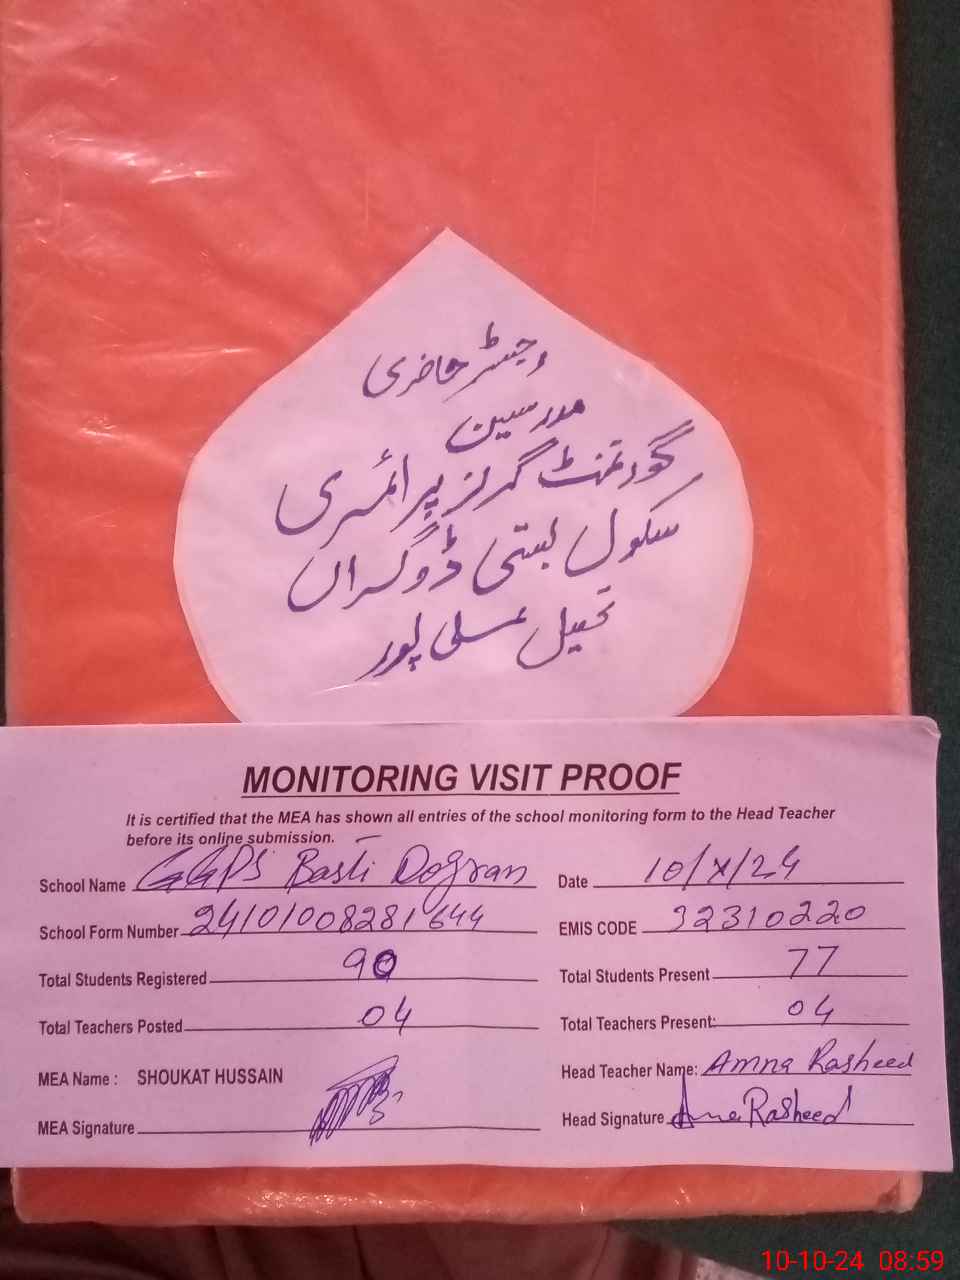 رجسٹر حاضری
مدرسین
گورنمنٹ گرلز پرائمری
سکول بستی ڈوگراں
تحصیل علی پور
MONITORING VISIT PROOF
It is certified that the MEA has shown all entries of the school monitoring form to the Head Teacher
before its online submission.
School Name GGPS Basti Dogran Date 10/X/24
School Form Number 24101008281644 EMIS CODE 32310220
Total Students Registered 90 Total Students Present 77
Total Teachers Posted 04 Total Teachers Present: 04
MEA Name : SHOUKAT HUSSAIN Head Teacher Name: Amna Rasheed
MEA Signature Head Signature Amna Rasheed
10-10-24 08:59